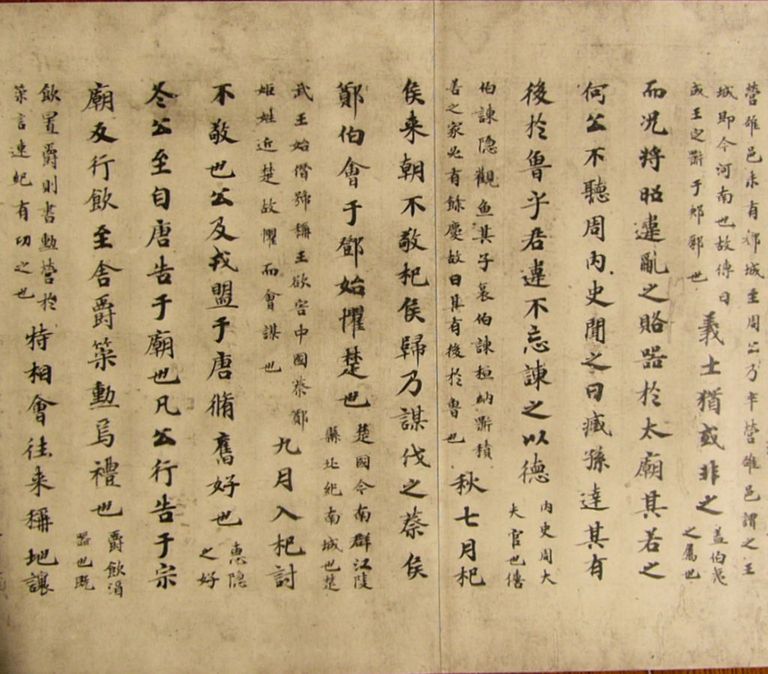 營雒邑未有郟城至周公乃卒營雒邑謂之王
城即今河南也故傳曰
成王定鼎于郟鄏也
義士猶或非之
蓋伯夷
之屬也
而况將昭違亂之賂器於太廟其若之
何公不聽周内史聞之曰臧孫達其有
後於魯乎君違不忘諫之以德
内史周大
夫官也僖
伯諫隐觀魚其子哀伯諫桓納鼎積
善之家必有餘慶故曰其有後於魯也
秋七月杞
侯来朝不敬杞侯歸乃謀伐之蔡侯
鄭伯會于鄧始懼楚也
楚國今南群江陵
縣北紀南城也楚
武王始僭號稱王欲害中國蔡鄭
姬姓近楚故懼而會謀也
九月入杞討
不敬也公及戎盟于唐脩舊好也
惠隐
之好
冬公至自唐告于廟也凡公行告于宗
廟反行飲至舍爵策勳焉禮也
爵飲酒
器也既
飲置爵則書勲勞於
策言速紀有功之也
特相會往来稱地讓